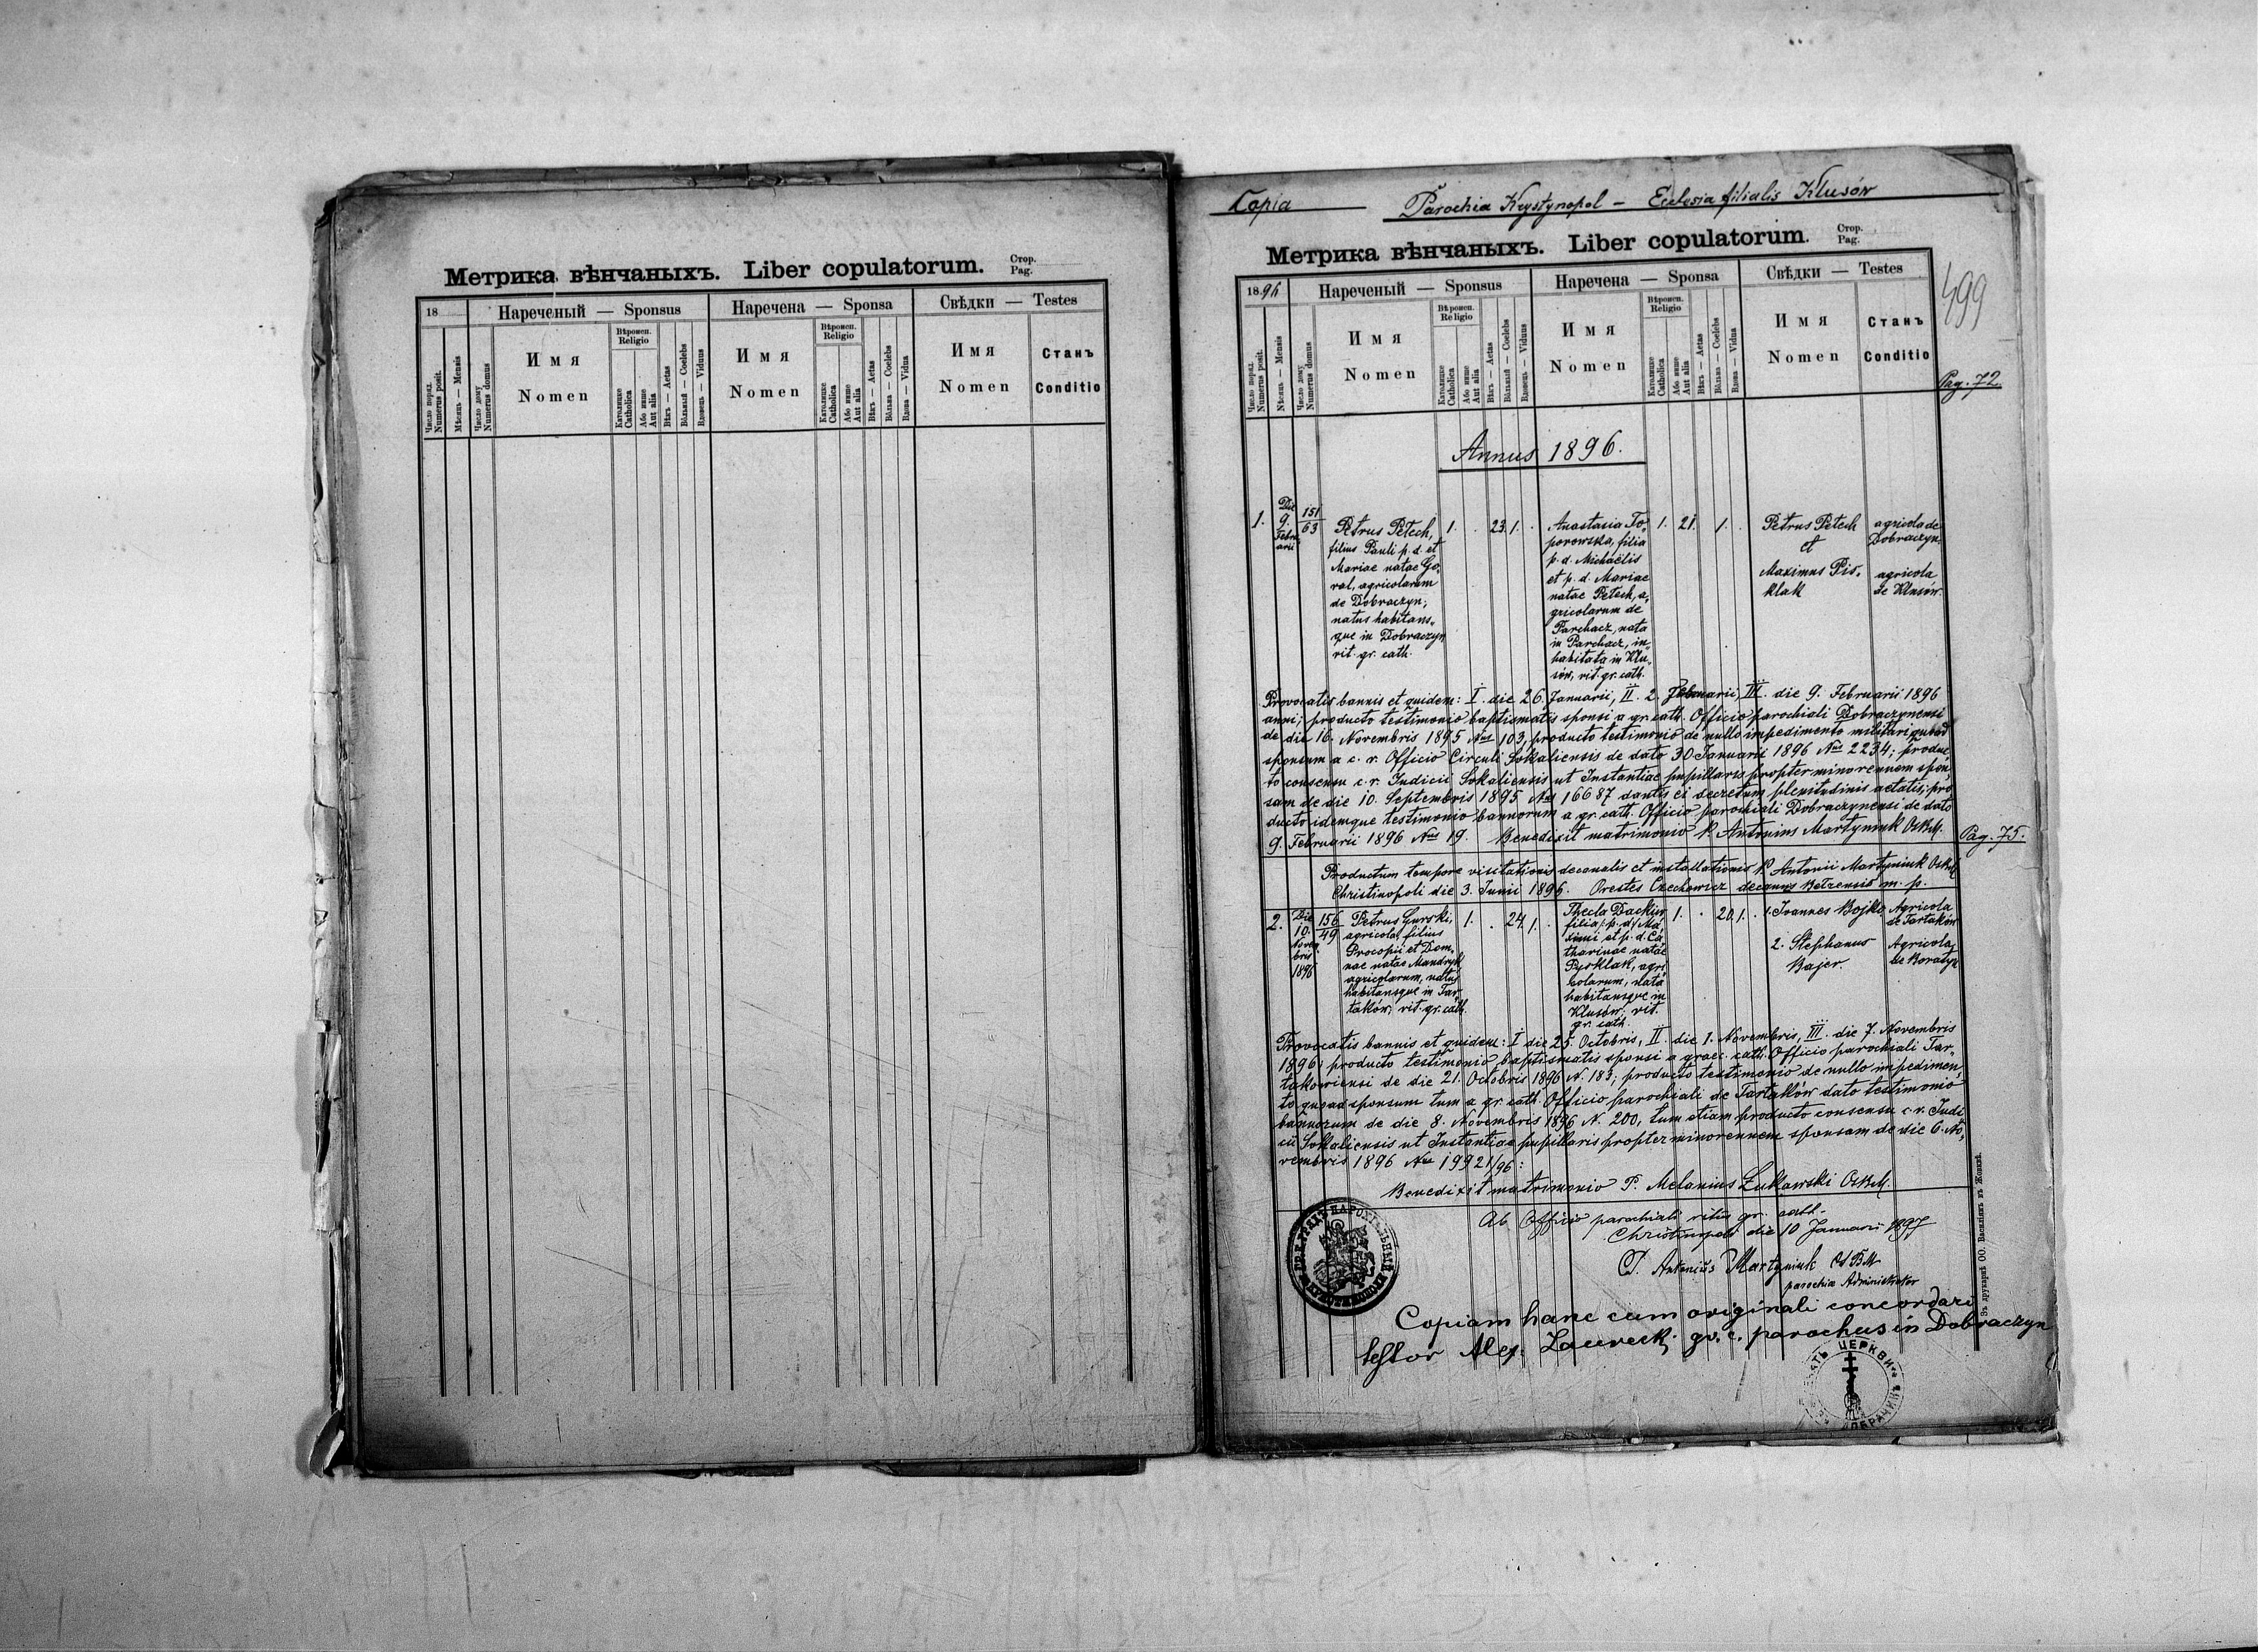 Метрика вѣнчаныхъ. Liber copulatorum. Стор. Pag.
18
Нареченый — Sponsus
Наречена — Sponsa
Свѣдки — Testes
Число поряд. Numerus posit.
Мѣсяць — Mensis
Число дому Numerus domus
Имя
Nomen
Вѣроисп. Religio
Католицке Catholica
Або инше Aut alia
Вѣкъ — Aetas
Вôльный — Coelebs
Вдовець — Viduus
Имя
Nomen
Вѣроисп. Religio
Католицке Catholica
Або инше Aut alia
Вѣкъ — Aetas
Вôльна — Coelebs
Вдова — Vidua
Имя
Nomen
Станъ
Conditio
Copia
Parochia Krystynopol — Ecclesia filialis Klusów
Метрика вѣнчаныхъ. Liber copulatorum. Стор. Pag.
499
1896
Нареченый — Sponsus
Наречена — Sponsa
Свѣдки — Testes
Число поряд. Numerus posit.
Мѣсяць — Mensis
Число дому Numerus domus
Имя
Nomen
Вѣроисп. Religio
Католицке Catholica
Або инше Aut alia
Вѣкъ — Aetas
Вôльный — Coelebs
Вдовець — Viduus
Имя
Nomen
Вѣроисп. Religio
Католицке Catholica
Або инше Aut alia
Вѣкъ — Aetas
Вôльна — Coelebs
Вдова — Vidua
Имя
Nomen
Станъ
Conditio
Pag. 72.
Annus 1896.
1.
Die
9.
Febru-
arii
151
63
Petrus Petech,
filius Pauli p. d. et
Mariae natae Go-
ral, agricolarum
de Dobraczyn;
natus habitans-
que in Dobraczyn
rit. gr. cath.
1. . 23. 1. .
Anastasia To-
porowska, filia
p. d. Michaëlis
et p. d. Mariae
natae Petech, a-
gricolarum de
Parchacz, nata
in Parchacz, in-
habitata in Klu-
sów, rit. gr. cath.
1. 21. 1.
Petrus Petech
et
Maximus Pis-
klak
agricola de
Dobraczyn.
agricola
de Klusów.
Provocatis bannis et quidem: I. die 26. Januarii, II. 2. Februarii, III. die 9. Februarii 1896
anni; producto testimonio baptismatis sponsi a gr. cath. Officio parochiali Dobraczynensi
de die 16. Novembris 1895 Nus 103, producto testimonio de nullo impedimento militari quoad
sponsum a c. r. Officio Circuli Sokaliensis de dato 30 Januarii 1896 Nus 2234; produc-
to consensu c. r. Judicii Sokaliensis ut Instantiae pupillaris propter minorennem spon-
sam de die 10. Septembris 1895 Nus 16687 dantis ei decretum plenitudinis aetatis; pro
ducto idemque testimonio bannorum a gr. cath. Officio parochiali Dobraczynensi de dato
9. Februarii 1896 Nus 19. Benedixit matrimonio P. Antonius Martyniuk OSBM.
Pag. 75.
Productum tempore visitationis decanalis et installationis P. Antonii Martyniuk OSBM
Christinopoli die 3. Junii 1896. Orestes Czechowicz decanus Belzensis m. p.
2.
Die
10.
Novem
bris
1896
156
49
Petrus Gurski,
agricola, filius
Procopii et Dom-
nae natae Mandryk
agricolarum, natus
habitansque in Tar-
taków, rit. gr. cath.
1. . 24. 1.
Thecla Dackiw
filia (p. d.) Ma
ximi et p. d. Ca
tharinae natae
Pysklak, agri
colarum, nata
habitansque in
Klusów. rit.
gr. cath.
1. . 20. 1. .
1. Joannes Bojko
2. Stephanus
Bajer.
Agricola
de Tartaków
Agricola
de Boratyn
Provocatis bannis et quidem: I die 25. Octobris, II. die 1. Novembris, III. die 7. Novembris
1896; producto testimonio baptismatis sponsi a graec. cath. Officio parochiali Tar-
takowiensi de die 21. Octobris 1896 N. 183; producto testimonio de nullo impedimen-
to quoad sponsum tum a gr. cath. Officio parochiali de Tartaków dato testimonio
bannorum de die 8. Novembris 1896 N. 200, tum etiam producto consensu c. r. Judi
cii Sokaliensis ut Instantiae pupillaris propter minorennem sponsam de die 6. No-
vembris 1896 Nus 19921/96:
Benedixit matrimonio P. Melanius Łukawski OSBM.
Ab Officio parochiali ritus gr. cath.
Christinopoli die 10 Januarii 1897
P. Antonius Martyniuk OSBM
parochiae Administrator
Copiam hanc cum originali concordari
testor Alex. Laurecki gr. c. parochus in Dobraczyn
Въ друкарнѣ ОО. Василіянъ въ Жовквѣ.